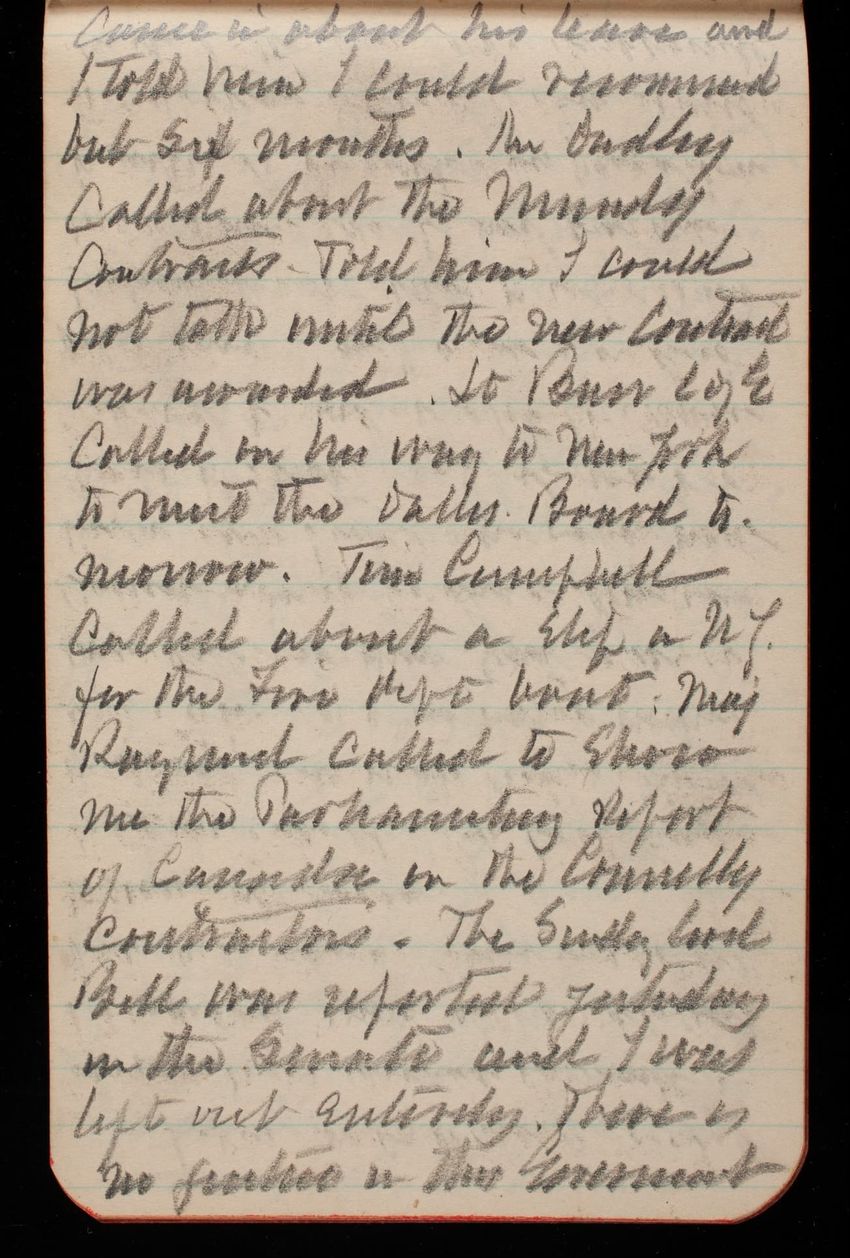 Came in about his leave and
I told him I could recommend
but six months. Mr Dudley
Called about the Mundy
Contracts. Told him I could
not talk until the new Contract
was awarded. Lt Burr C of E
Called on his way to New York
to meet the Dalles Board to-
morrow. Tim Campbell
Called about a Slip in N Y.
for the Fire dept boat. Maj
Raymond Called to Show
me the Parliamentary Report
of Canada on the Connelly
Contractors. The Sundry Civil
Bill was reported yesterday
in the Senate and I was
left out entirely. There is
no justice in this Government